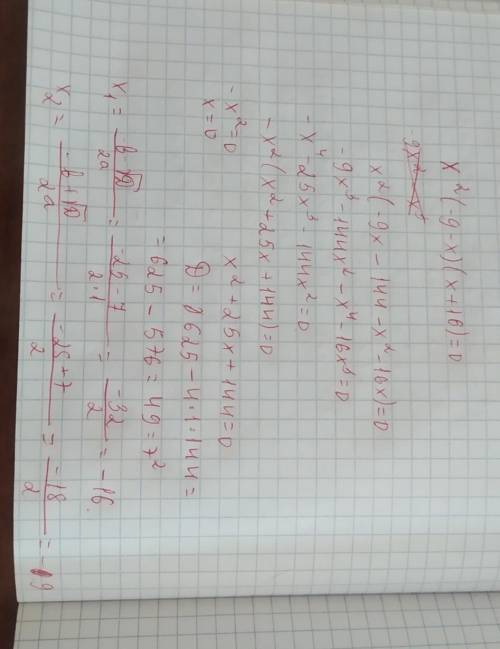 x²(-9-x)(x+16)=0
x²(-9x-144-x²-16x)=0
-9x³-144x²-x⁴-16x³=0
-x⁴-25x³-144x²=0
-x²(x²+25x+144)=0
-x²=0
x=0
x²+25x+144=0
D=625-4·1·144=
=625-576=49=7²
x₁ = -b-√D / 2a = -25-7 / 2·1 = -32 / 2 = -16.
x₂ = -b+√D / 2a = -25+7 / 2 = -18 / 2 = -9